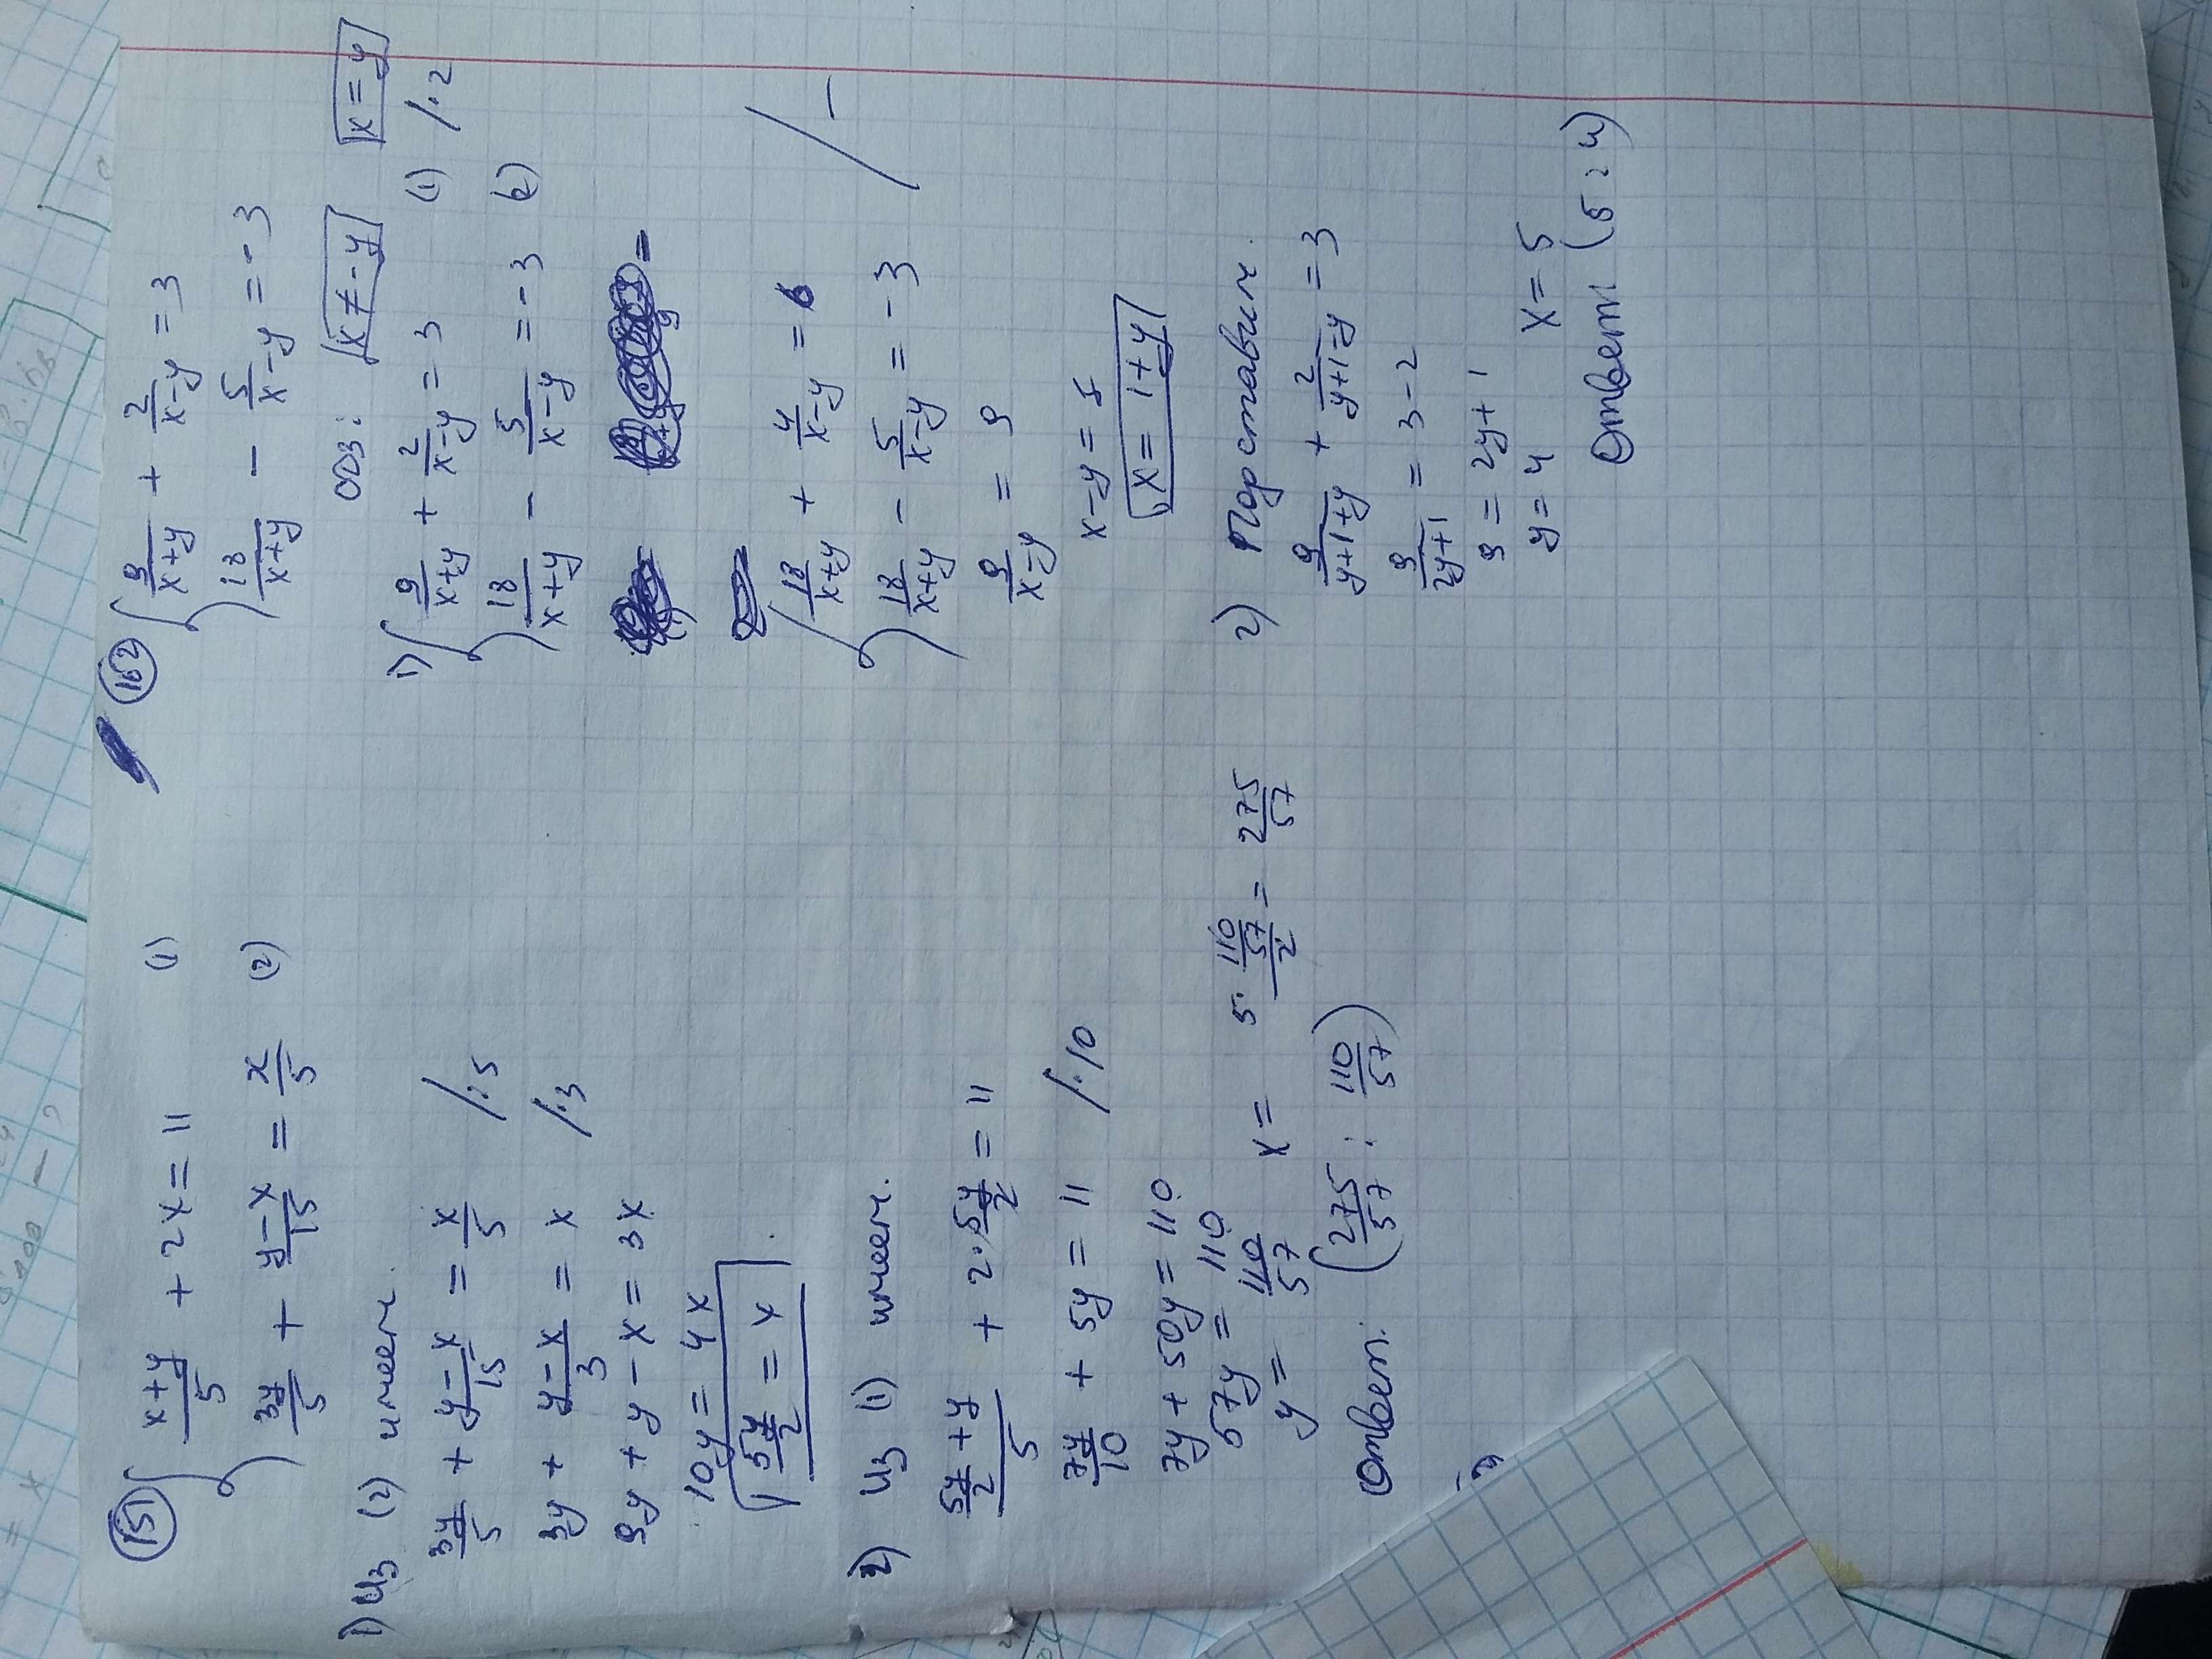 151
(x+y)/5 + 2x = 11 (1)
3y/5 + (y-x)/15 = x/5 (2)
1) Из (2) имеем.
3y/5 + (y-x)/15 = x/5 /·5
3y + (y-x)/3 = x /·3
9y + y - x = 3x
10y = 4x
5y/2 = x
2) Из (1) имеем.
(5y/2 + y)/5 + 2·5y/2 = 11
7y/10 + 5y = 11 /·10
7y + 50y = 110
57y = 110
y = 110/57 x = 5·(110/57)/2 = 275/57
Ответ: (275/57 ; 110/57)
162
9/(x+y) + 2/(x-y) = 3
18/(x+y) - 5/(x-y) = -3
ОДЗ: x ≠ -y x = y
1) 9/(x+y) + 2/(x-y) = 3 (1) /·2
18/(x+y) - 5/(x-y) = -3
18/(x+y) + 4/(x-y) = 6
18/(x+y) - 5/(x-y) = -3 / -
9/(x-y) = 9
x = 1+y
2) Подставим.
9/(y+1+y) + 2/(y+1-y) = 3
9/(2y+1) = 3-2
9 = 2y+1
y = 4 x = 5
Ответ (5 ; 4)